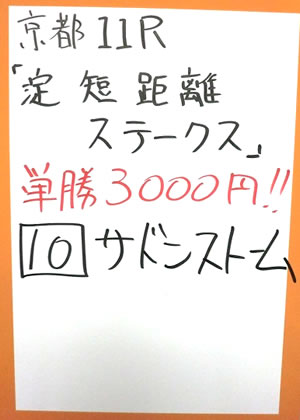 京都11R
「淀短距離
ステークス」
単勝3000円!!
10 サドンストーム